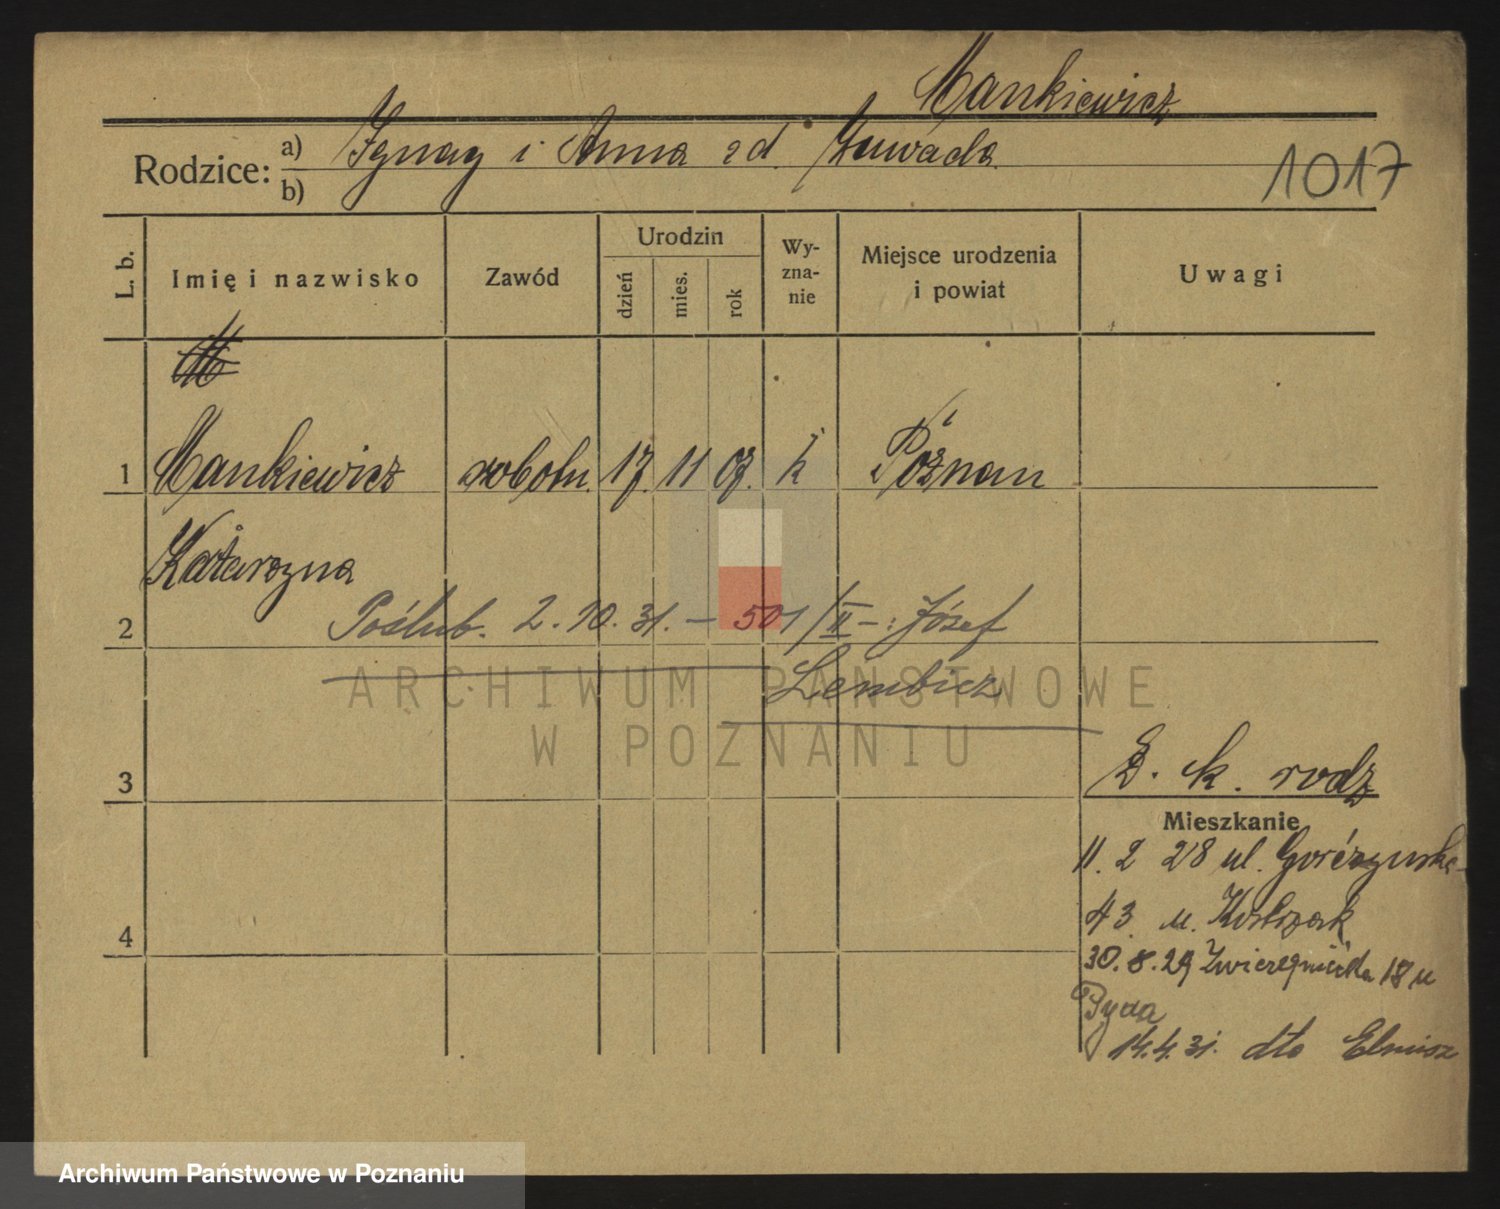 Mankiewicz
Rodzice: a) Ignacy i Anna z d. Zawada
b)
1017
L. b.
Imię i nazwisko
Zawód
Urodzin
dzień
mies.
rok
Wy-
zna-
nie
Miejsce urodzenia
i powiat
Uwagi
1 Mankiewicz robotn. 17. 11 07. k Poznań
Katarzyna
2 Poślub. 2.10.31. – 501/II – : Józef
Lembicz
ARCHIWUM PAŃSTWOWE
W POZNANIU
3
k. rodz
Mieszkanie
11. 2 28 ul. Górczyńska
43 u.
4
30.8.29 Zwierzyniecka 18 u
Pyda
14.4.31. dto
Archiwum Państwowe w Poznaniu